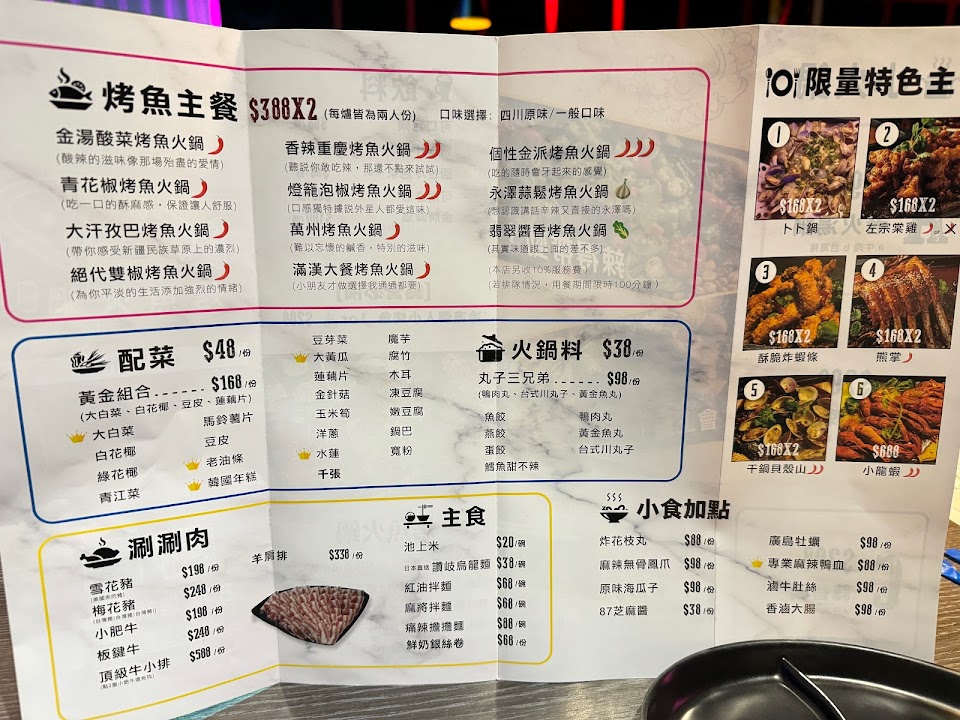 烤魚主餐 $388X2 (每爐皆為兩人份) 口味選擇: 四川原味/一般口味
金湯酸菜烤魚火鍋
(酸辣的滋味像那場殆盡的愛情)
青花椒烤魚火鍋
(吃一口的酥麻感，保證讓人舒服)
大汗孜巴烤魚火鍋
(帶你感受新疆民族草原上的濃烈)
絕代雙椒烤魚火鍋
(為你平淡的生活添加強烈的情緒)
香辣重慶烤魚火鍋
(聽說你敢吃辣，那還不點來試試)
燈籠泡椒烤魚火鍋
(口感獨特據說外星人都愛這味)
萬州烤魚火鍋
(難以忘懷的鹹香，特別的滋味)
滿漢大餐烤魚火鍋
(小朋友才做選擇我通通都要)
個性金派烤魚火鍋
(吃的隨時會牙起來的感覺)
永澤蒜鬆烤魚火鍋
(想認識講話辛辣又直接的永澤嗎)
翡翠醬香烤魚火鍋
(其實味道跟上面的差不多)
(本店另收10%服務費)
(若排隊情況，用餐期間限時100分鐘)
配菜 $48/份
黃金組合 $168/份
(大白菜、白花椰、豆皮、蓮藕片)
大白菜
白花椰
綠花椰
青江菜
馬鈴薯片
豆皮
老油條
韓國年糕
豆芽菜
大黃瓜
蓮藕片
金針菇
玉米筍
洋蔥
水蓮
千張
魔芋
腐竹
木耳
凍豆腐
嫩豆腐
鍋巴
寬粉
火鍋料 $38/份
丸子三兄弟 $98/份
(鴨肉丸、台式川丸子、黃金魚丸)
魚餃
燕餃
蛋餃
鱈魚甜不辣
鴨肉丸
黃金魚丸
台式川丸子
涮涮肉
雪花豬 $198/份
(美國來的豬)
梅花豬 $248/份
小肥牛 $198/份
板鍵牛 $248/份
頂級牛小排 $588/份
羊肩排 $338/份
主食
池上米 $20/碗
日本直送 讚岐烏龍麵 $38/碗
紅油拌麵 $68/碗
麻將拌麵 $68/碗
痛辣擔擔麵 $88/碗
鮮奶銀絲卷 $68/份
小食加點
炸花枝丸 $88/份
麻辣無骨鳳爪 $98/份
原味海瓜子 $98/份
87芝麻醬 $38/份
廣島牡蠣 $98/份
專業麻辣鴨血 $88/份
滷牛肚絲 $98/份
香滷大腸 $98/份
限量特色主
1 $168X2
卜卜鍋
2 $168X2
左宗棠雞 or
3 $168X2
酥脆炸蝦條
4 $168X2
熊掌
5 $168X2
干鍋貝殼山
6 $688
小龍蝦